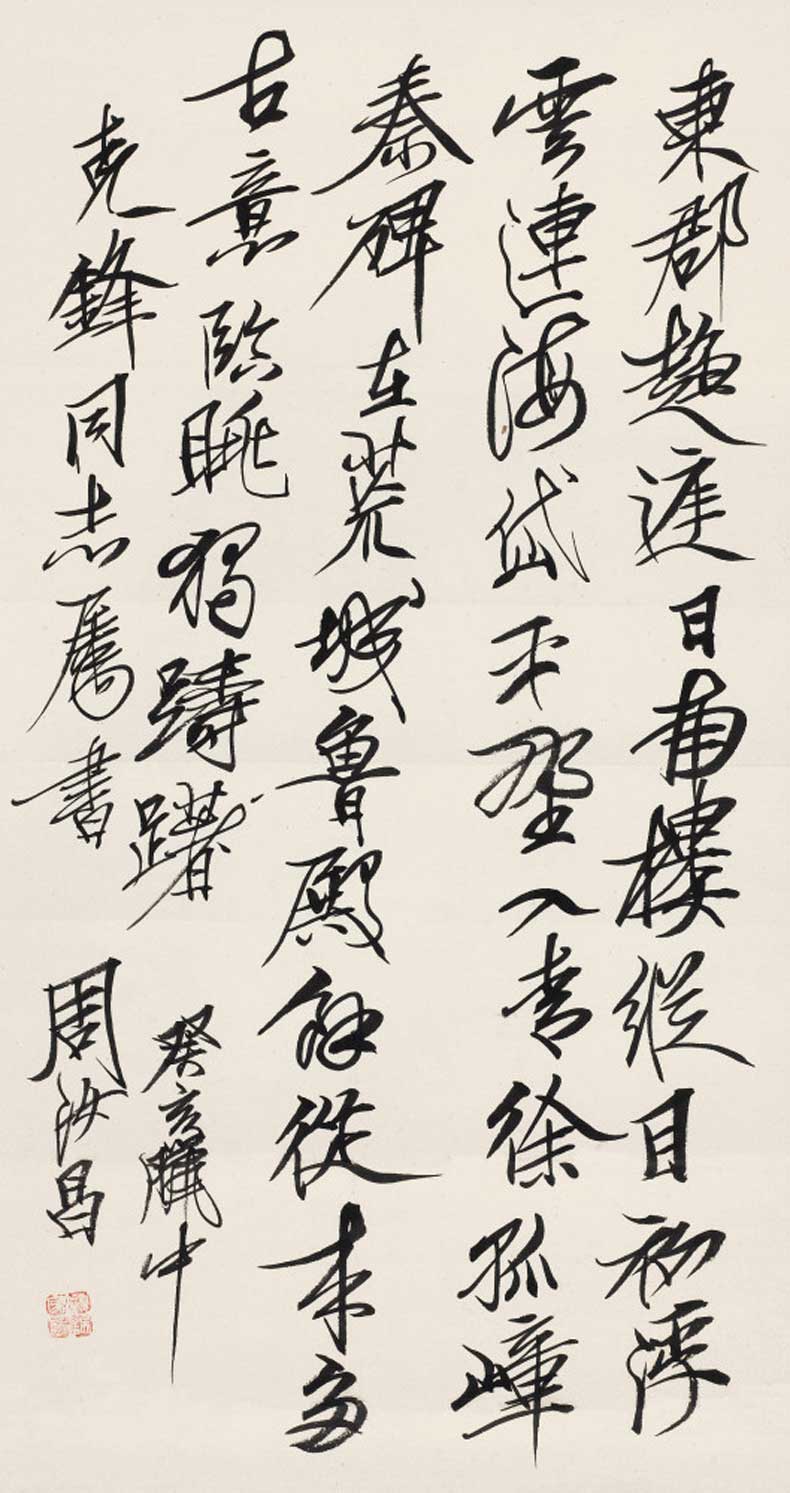 東郡趨庭日南樓縱目初浮
雲連海岱平野入青徐孤嶂
秦碑在荒城魯殿餘從來多
古意臨眺獨躊躇 癸亥臘中
克鋒同志屬書 周汝昌